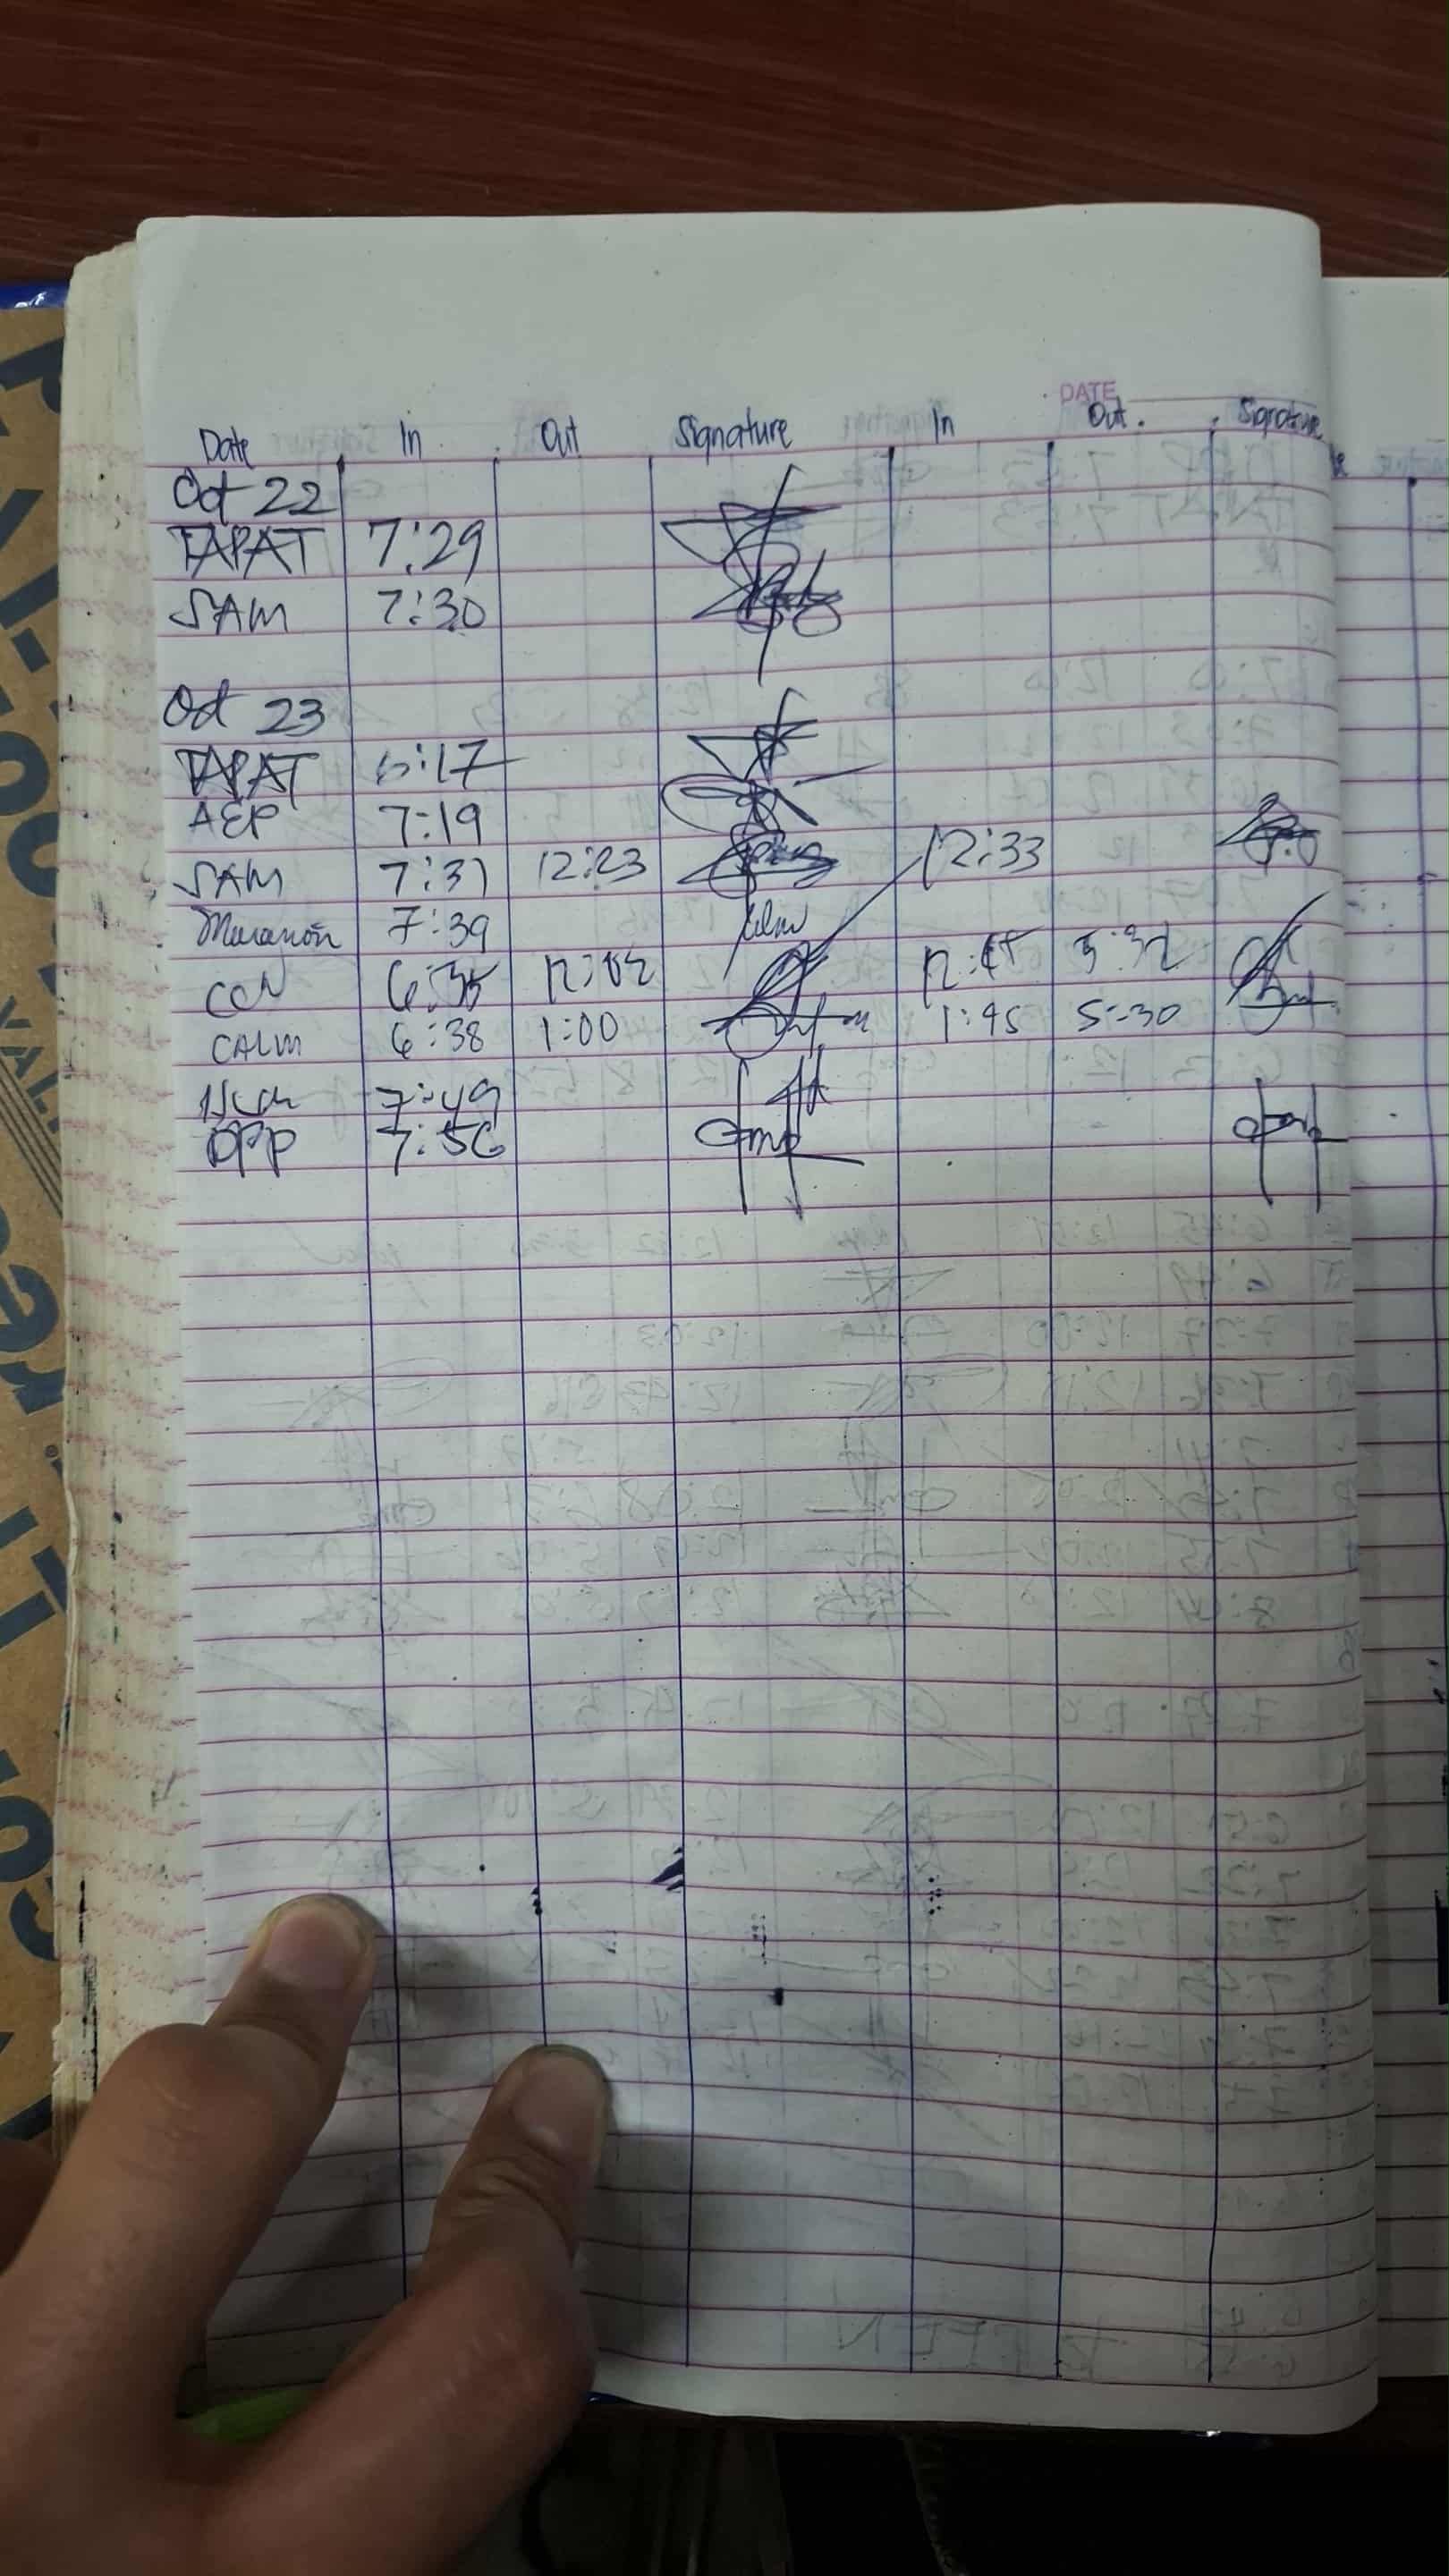 DATE
Date In Out Signature In Out. Signature
Oct 22
TAPAT 7:29
SAM 7:30
Oct 23
TAPAT 6:17
AEP 7:19
SAM 7:31 12:23 12:33
Maranon 7:39
CCN 6:35 12:02 5:32
CALM 6:38 1:00 1:45 5:30
7:49
OPP 7:56